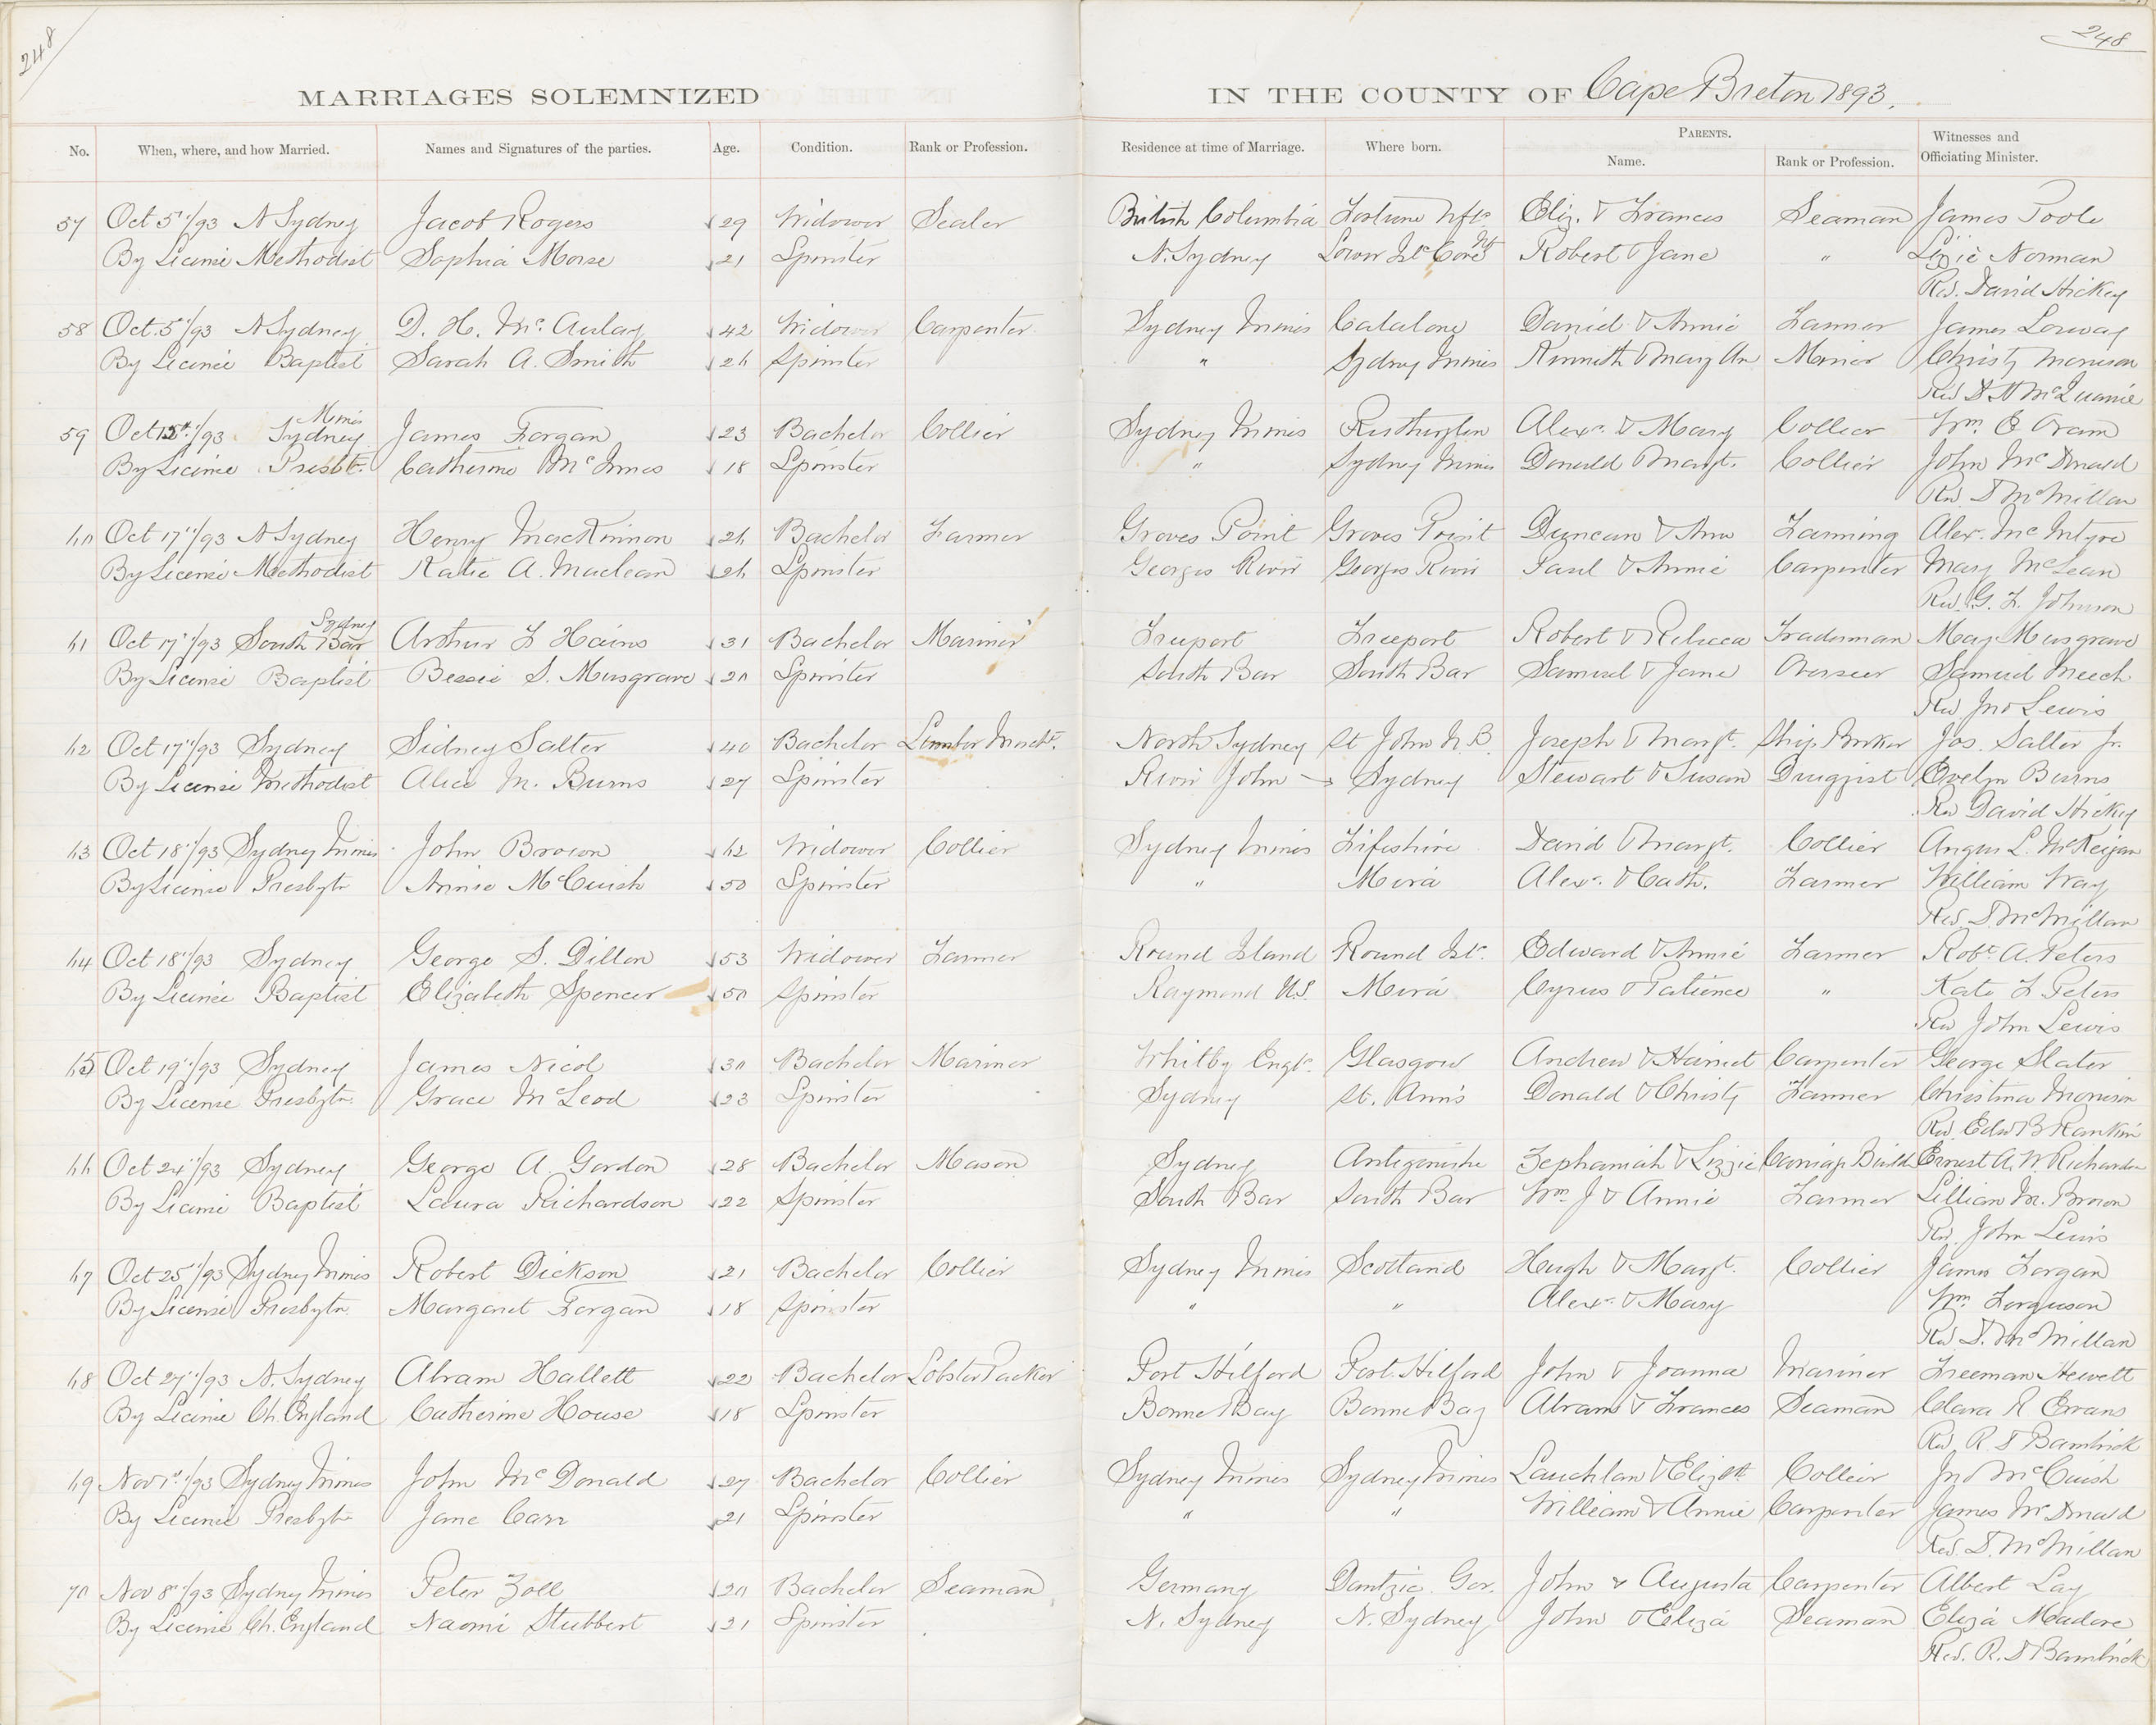 248
248
MARRIAGES SOLEMNIZED IN THE COUNTY OF Cape Breton 1893.
No. When, where, and how Married. Names and Signatures of the parties. Age. Condition. Rank or Profession. Residence at time of Marriage. Where born. PARENTS. Name. Rank or Profession. Witnesses and Officiating Minister.
57 Oct 5"/93 N Sydney Jacob Rogers 29 Widower Sealer British Columbia Fortune Nfld Eliz. & Frances Seaman James Poole
By License Methodist Sophia Morse 21 Spinster N. Sydney Lower Isld Cove Nf Robert & Jane " Lizzie Norman
Rev. David Hickey
58 Oct. 5"/93 N Sydney D. H. McAulay 42 Widower Carpenter Sydney Mines Catalone Daniel & Annie Farmer James Lorway
By License Baptist Sarah A. Smith 26 Spinster " Sydney Mines Kenneth & Mary An Miner Christy Morrison
Rev D N McQuarrie
59 Oct 12th/93 Sydney Mines James Forgan 23 Bachelor Collier Sydney Mines Rutherglen Alexr. & Mary Collier Wm. E Oram
By License Presbt. Catherine McInnes 18 Spinster " Sydney Mines Donald & Margt. Collier John McDonald
Rev D McMillan
60 Oct 17"/93 N Sydney Henry MacKinnon 26 Bachelor Farmer Groves Point Groves Point Duncan & Ann Farming Alex. McIntyre
By License Methodist Katie A. Maclean 26 Spinster Georges River Georges River Paul & Annie Carpenter Mary McLean
Rev. G. F. Johnson
61 Oct 17"/93 South Bar Sydney Arthur F Hains 31 Bachelor Mariner Freeport Freeport Robert & Rebecca Traderman May Musgrave
By License Baptist Bessie S. Musgrave 20 Spinster South Bar South Bar Samuel & Jane Overseer Samuel Meech
Rev Jno Lewis
62 Oct 17"/93 Sydney Sidney Salter 40 Bachelor Lumber Mercht. North Sydney St John N.B. Joseph & Margt. Ship Broker Jos. Salter Jr.
By License Methodist Alice M. Burns 27 Spinster River John Sydney Stewart & Susan Druggist Evelyn Burns
Rev David Hickey
63 Oct 18"/93 Sydney Mines John Brown 62 Widower Collier Sydney Mines Fifeshire David & Margt. Collier Angus L. McKeigan
By License Presbytn Annie McCuish 50 Spinster " Mira Alexr. & Cath. Farmer William Way
Rev. D. McMillan
64 Oct 18"/93 Sydney George S. Dillon 53 Widower Farmer Round Island Round Isld. Edward & Annie Farmer Robt A. Peters
By License Baptist Elizabeth Spencer 50 Spinster Raymond U.S. Mira Cyrus & Patience " Kate F Peters
Rev John Lewis
65 Oct 19"/93 Sydney James Nicol 30 Bachelor Mariner Whitby Engld. Glasgow Andrew & Harriet Carpenter George Slater
By License Presbytn. Grace McLeod 23 Spinster Sydney St. Ann's Donald & Christy Farmer Christina Morrison
Rev. Edw B Rankin
66 Oct 24"/93 Sydney George A. Gordon 28 Bachelor Mason Sydney Antigonishe Zephaniah & Lizzie Carriage Build Ernest A. W. Richardson
By License Baptist Laura Richardson 22 Spinster South Bar South Bar Wm. J & Annie Farmer Lillian M. Brown
Rev. John Lewis
67 Oct 25"/93 Sydney Mines Robert Dickson 21 Bachelor Collier Sydney Mines Scotland Hugh & Margt. Collier James Forgan
By License Presbytn. Margaret Forgan 18 Spinster " " Alexr. & Mary Wm. Ferguson
Rev D. McMillan
68 Oct 27"/93 N. Sydney Abram Hallett 22 Bachelor Lobster Packer Port Hilford Port Hilford John & Joanna Mariner Freeman Hewett
By License Ch. England Catherine House 18 Spinster Bonne Bay Bonne Bay Abram & Frances Seaman Clara R Evans
Rev. R. D Bambrick
69 Nov 1st/93 Sydney Mines John McDonald 27 Bachelor Collier Sydney Mines Sydney Mines Lauchlan & Elizbth Collier Jno McCuish
By License Presbytn Jane Carr 21 Spinster " " William & Annie Carpenter James McDonald
Rev. D. McMillan
70 Nov 8"/93 Sydney Mines Peter Zoll 20 Bachelor Seaman Germany Dantzic Ger. John & Augusta Carpenter Albert Lay
By License Ch. England Naomi Stubbert 21 Spinster N. Sydney N. Sydney John & Eliza Seaman Eliza Meadore
Rev. R. D Bambrick